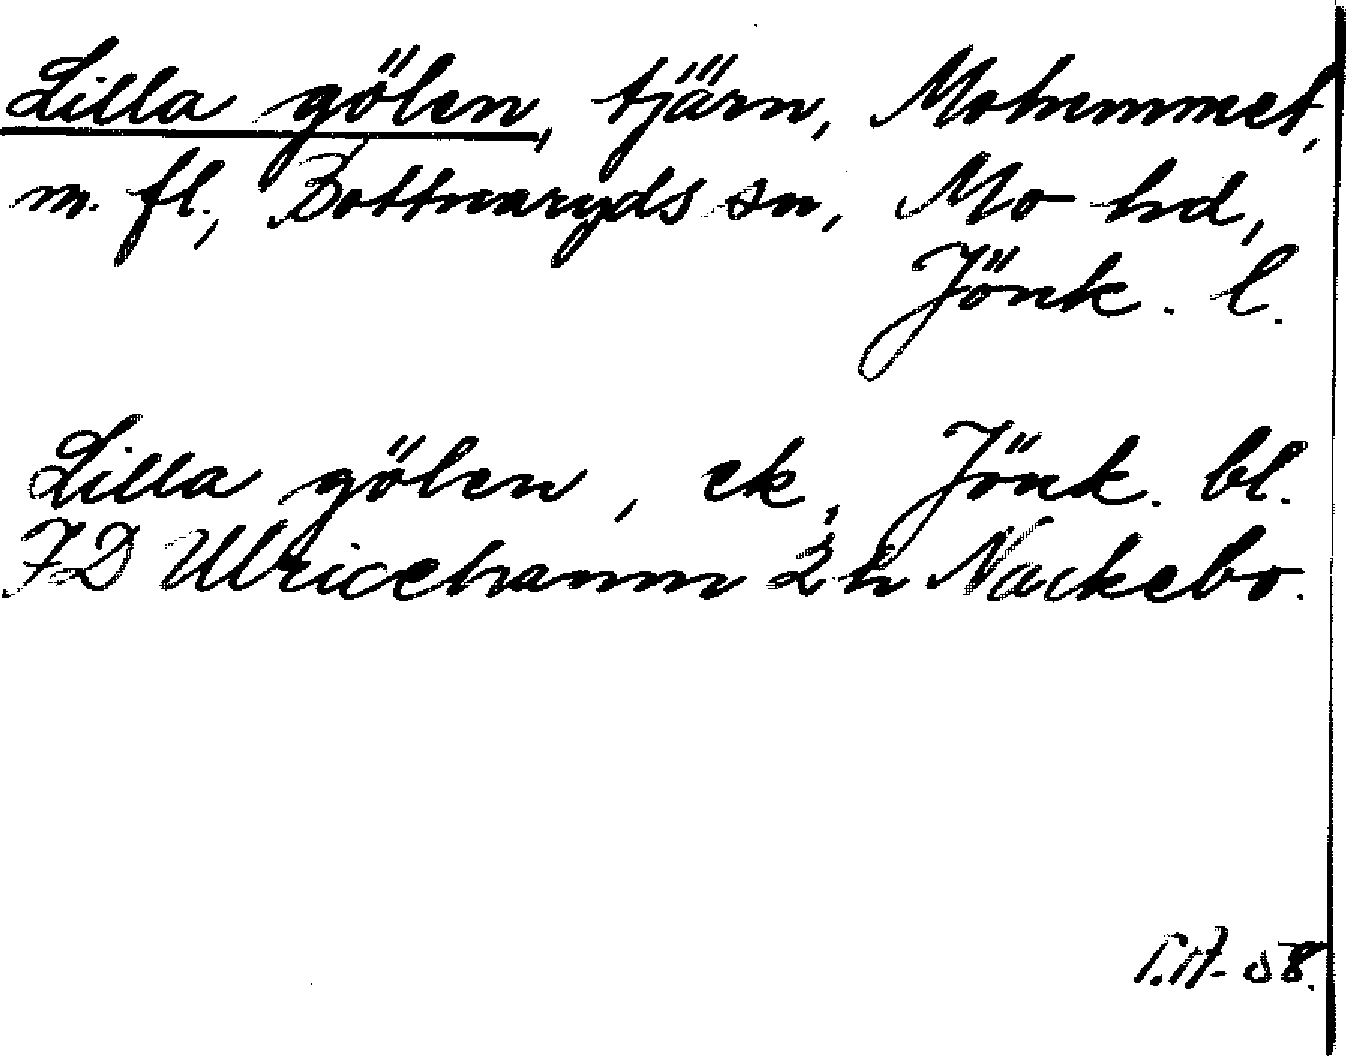 Lilla gölen, tjärn, Mohemmet,
m. fl., Bottnaryds sn, Mo hd,
Jönk. l.
Lilla gölen, ek, Jönk. bl.
7D Ulricehamn 2h Nackebo.
58.